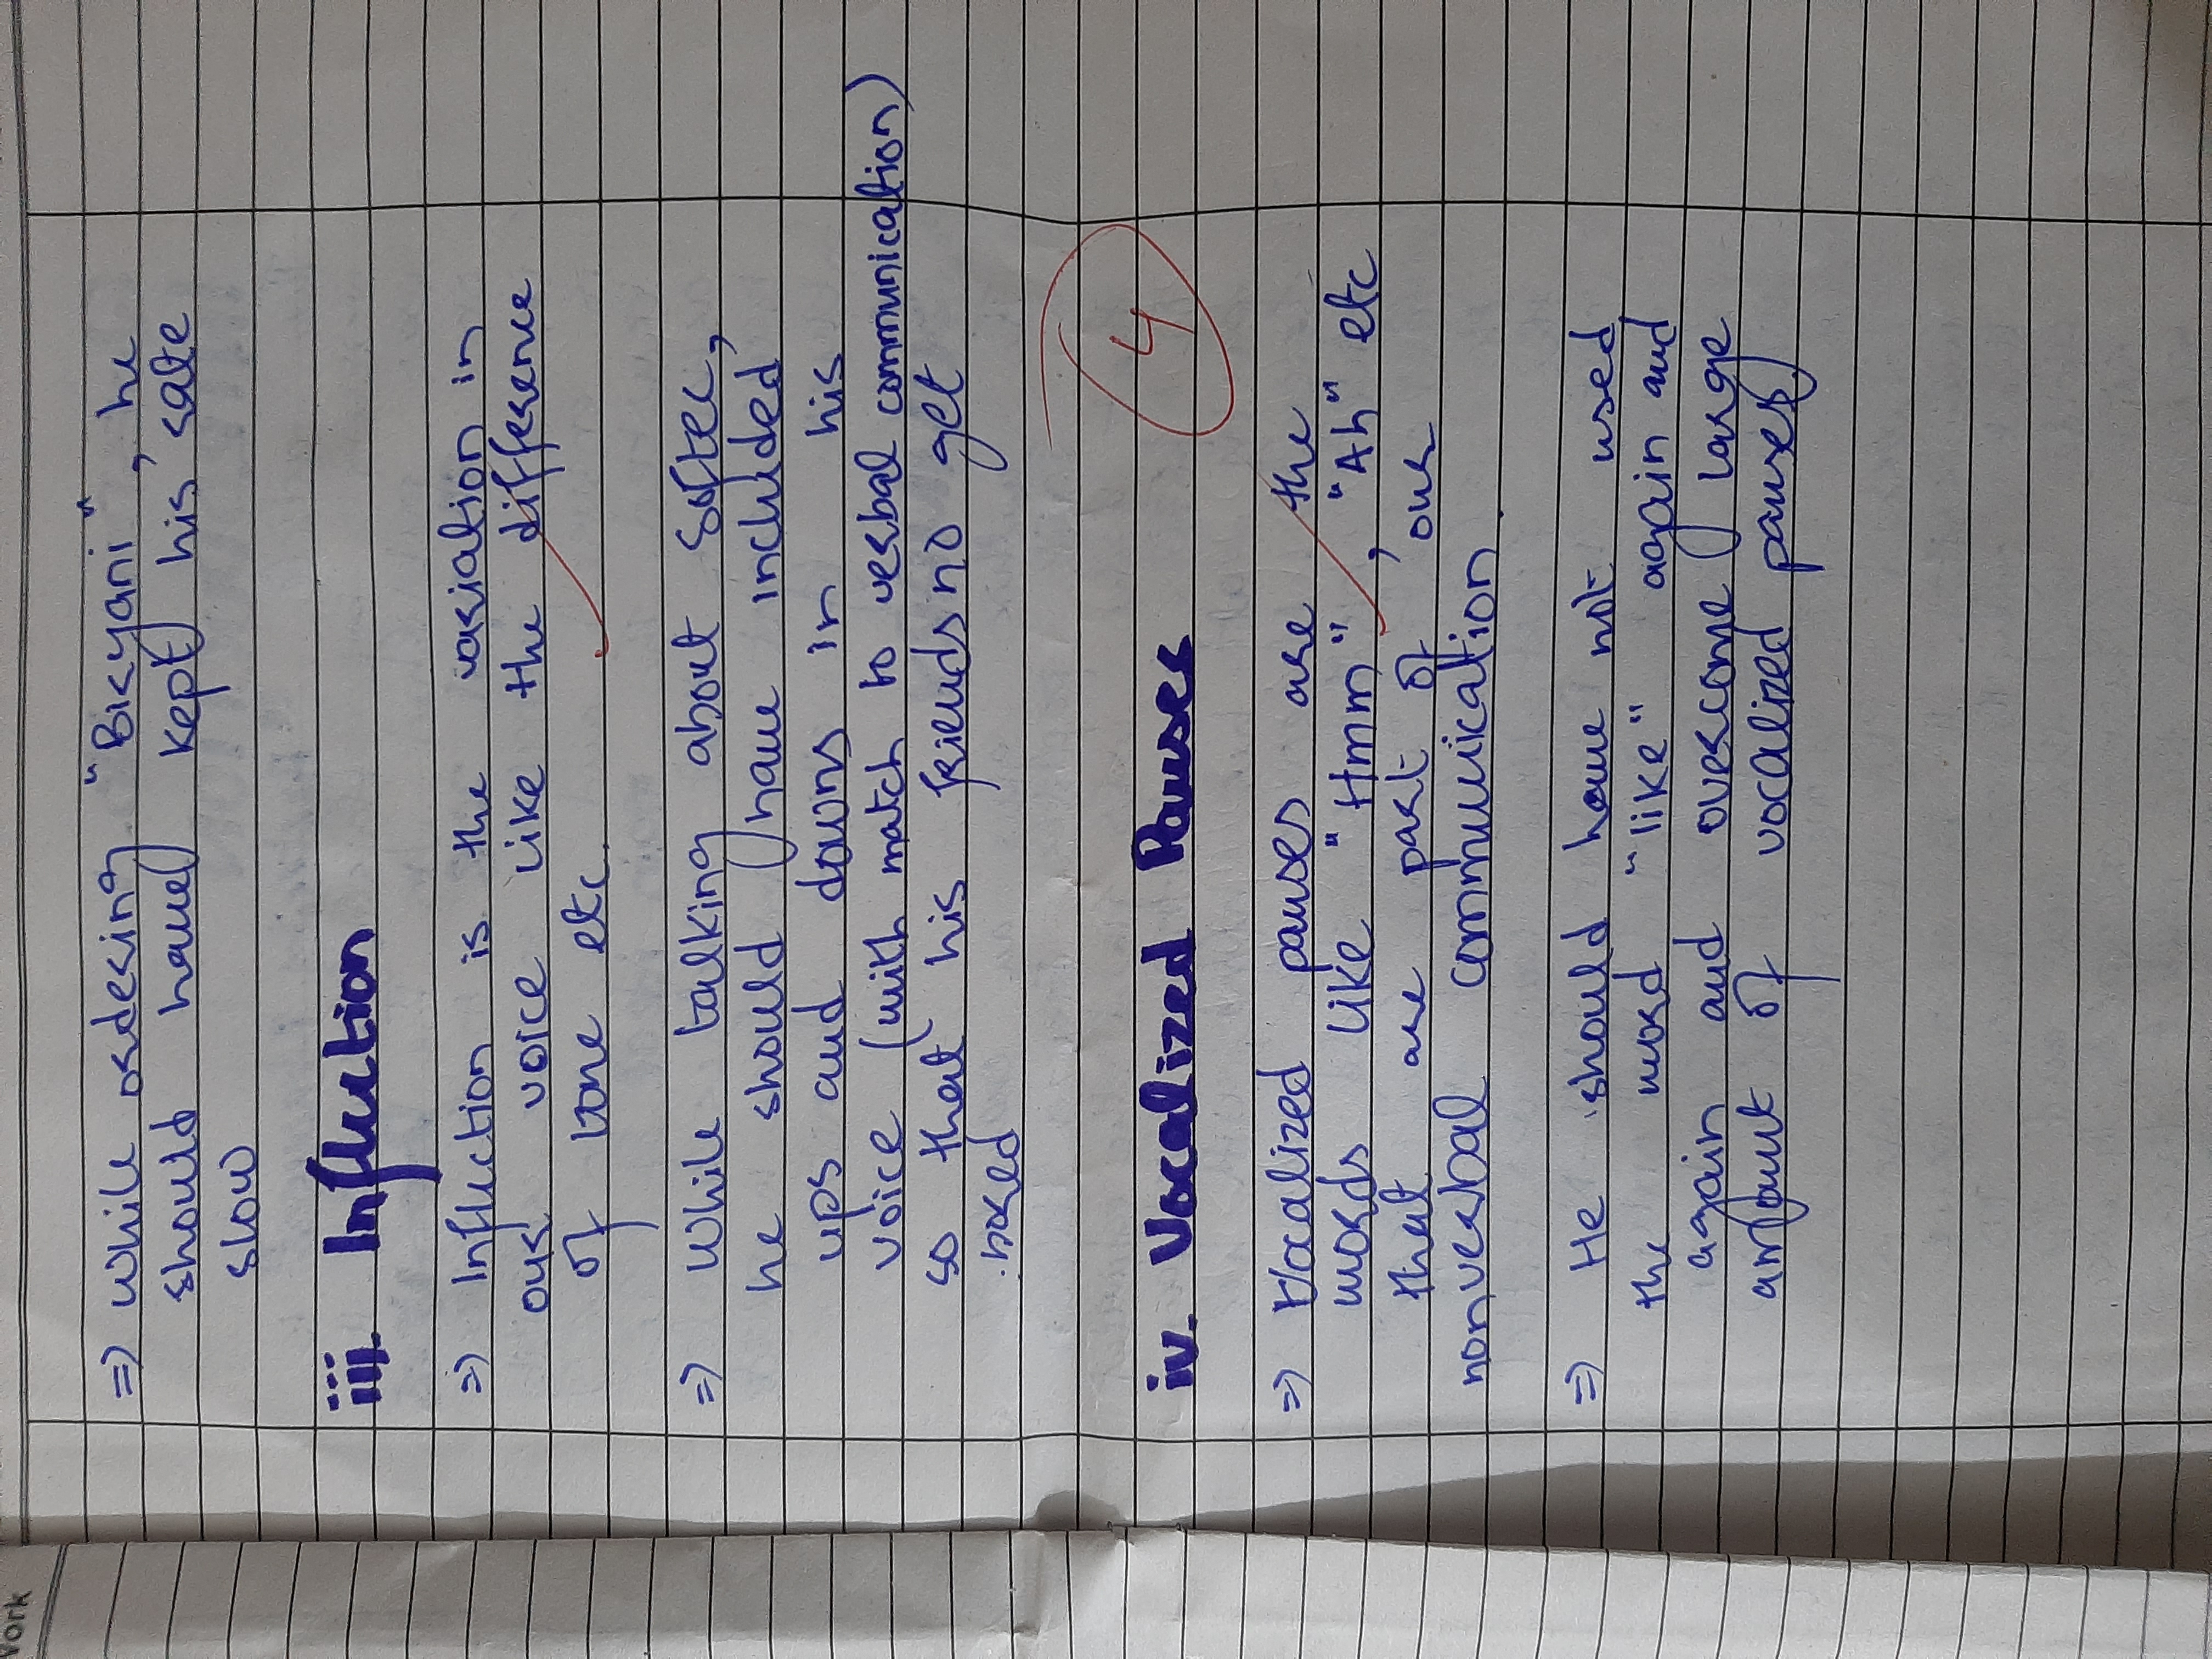 =) While ordering "Biryani", he
should have kept his rate
slow
iii. Influction
=) Influction is the variation in
our voice like the difference
of tone etc.
=) While talking about Softec,
he should have included
ups and downs in his
voice (with match to verbal communication)
so that his friends no get
bored
4
iv. Vocalized Pauses
=) Vocalized pauses are the
words like "Hmm", "Ah" etc
that are part of our
nonverbal communication.
=) He should have not used
the word "like" again and
again and overcome large
amount of vocalized pauses
Work